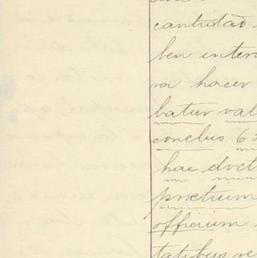 cantidad
ben inter
ra hacer
batur val
conclus 62
hac doct
pretium
officium
tatibus ve